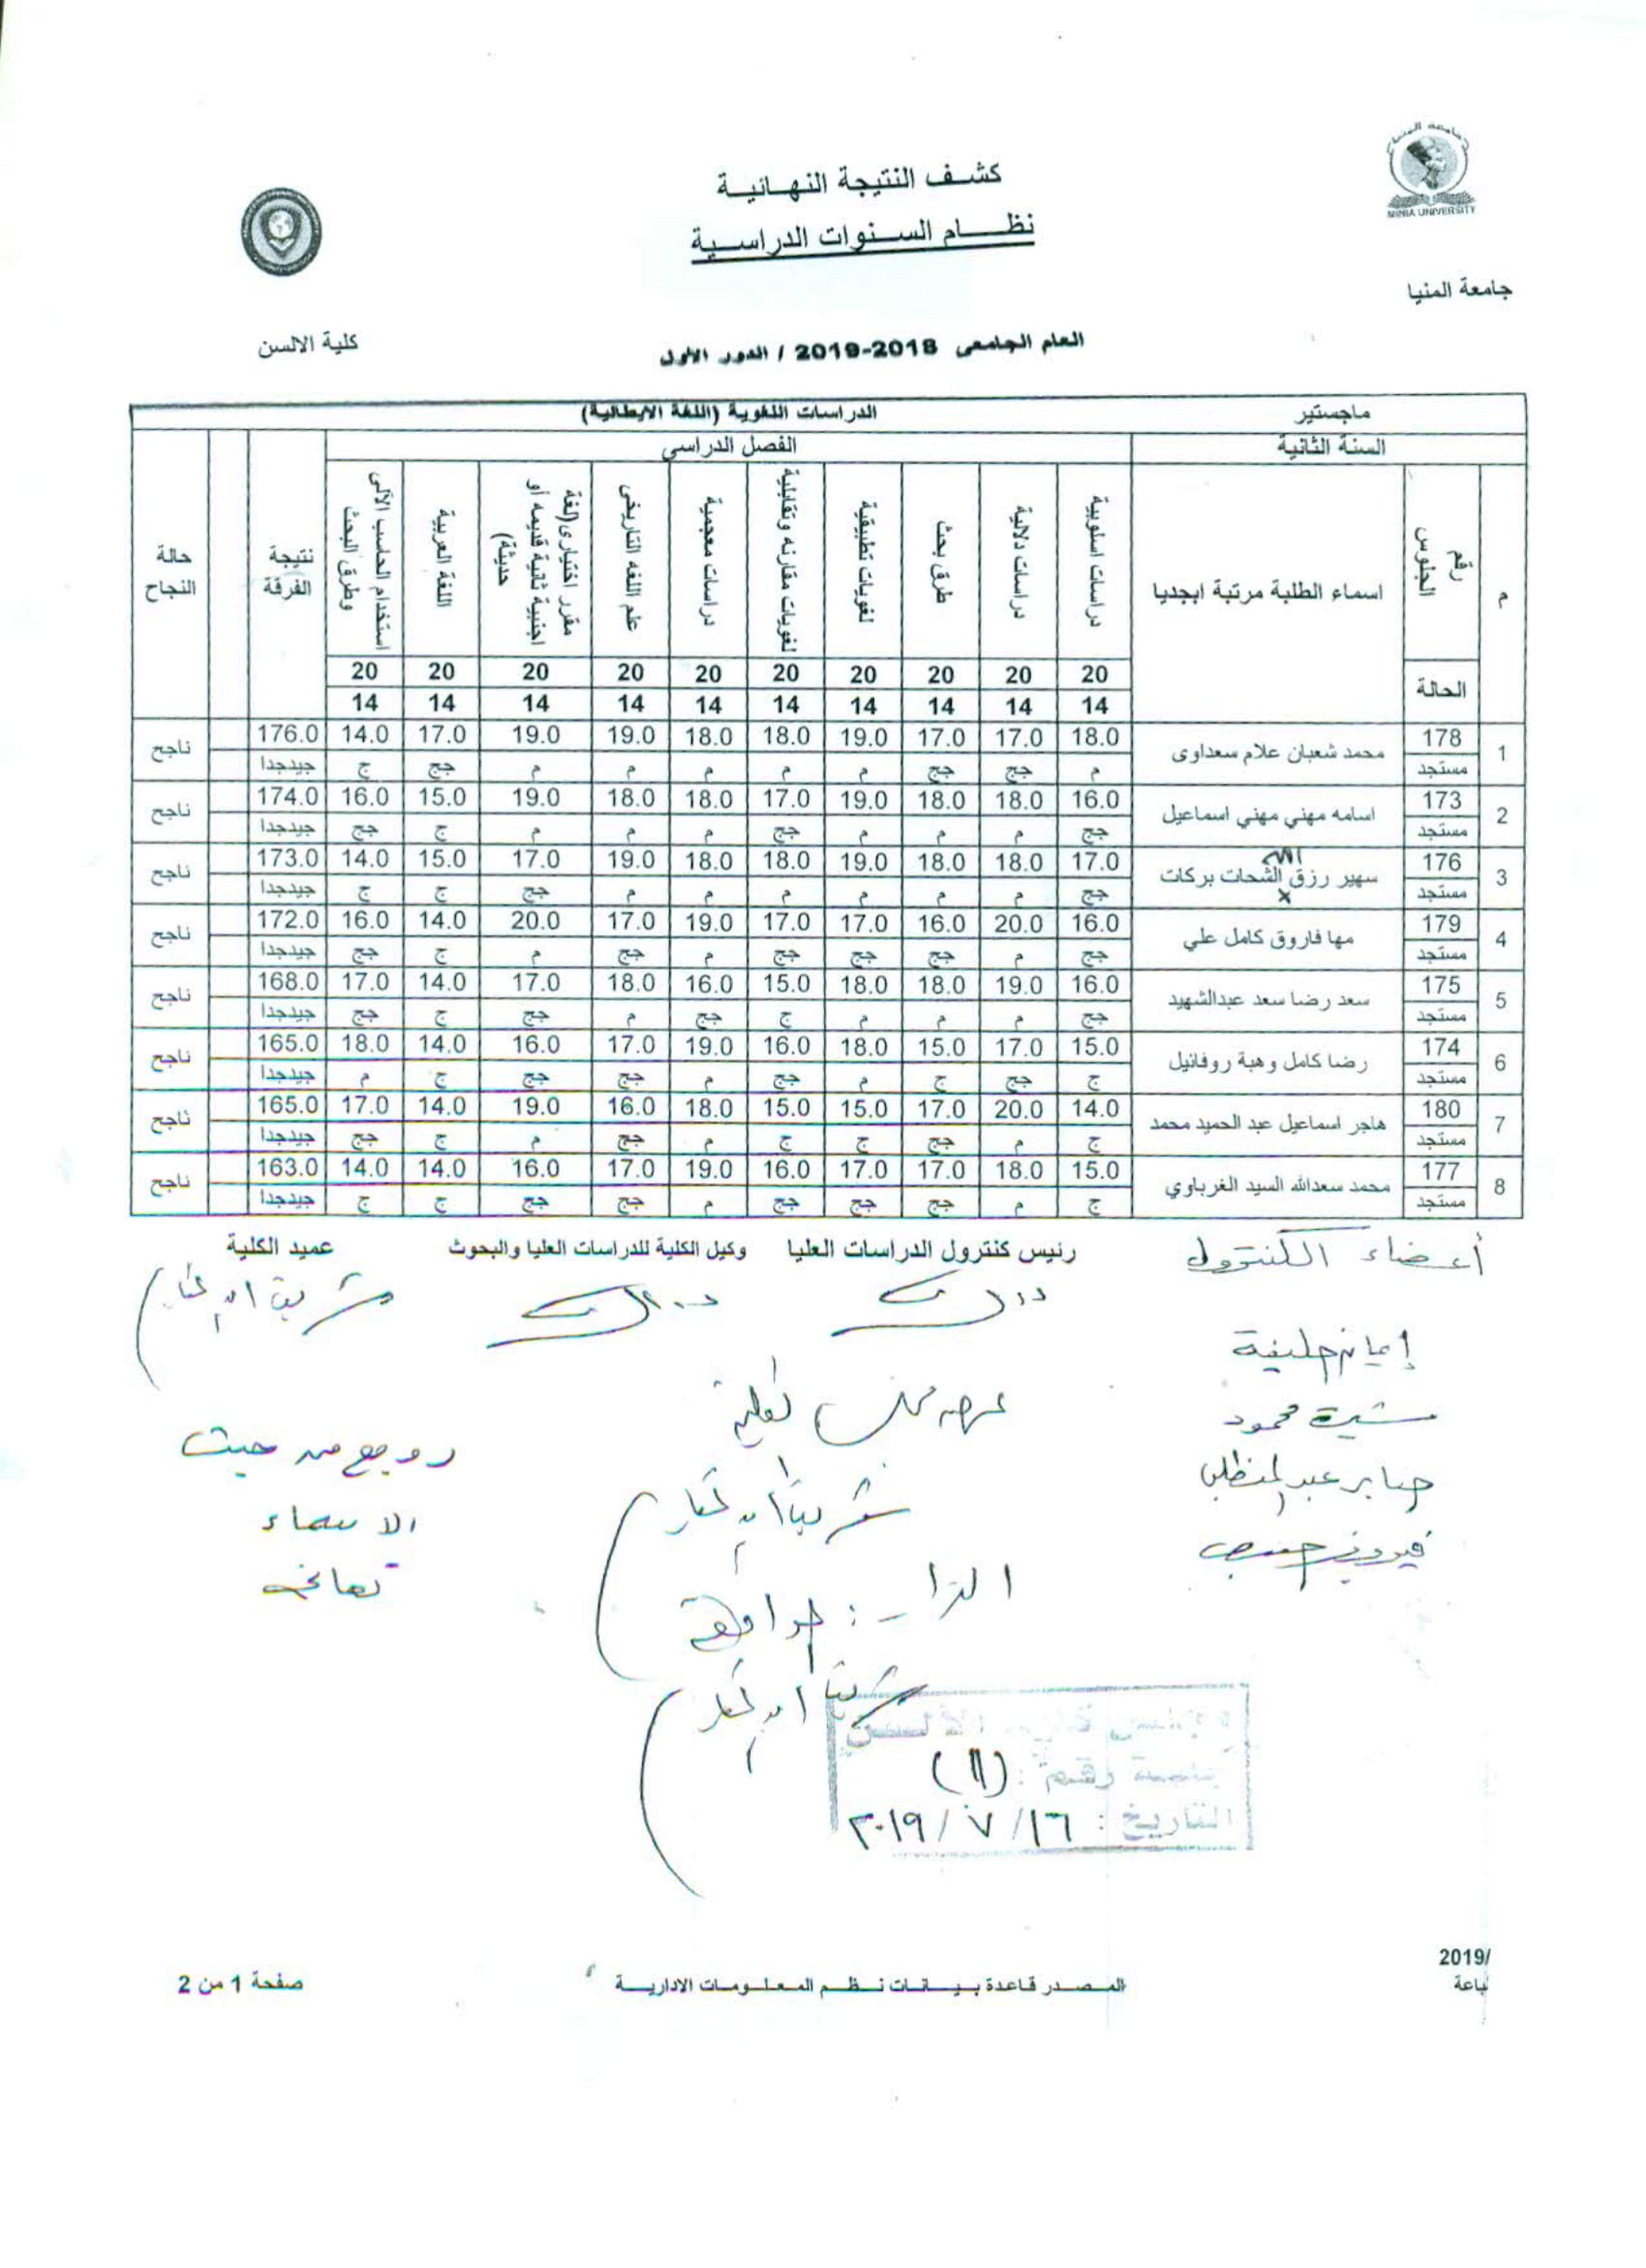 جامعة المنيا
MINIA UNIVERSITY
كشف النتيجة النهائية
نظام السنوات الدراسية
جامعة المنيا
كلية الالسن
العام الجامعى 2018-2019 / الدور الأول
ماجستير الدراسات اللغوية (اللغة الايطالية)
السنة الثانية الفصل الدراسي
م رقم الجلوس اسماء الطلبة مرتبة ابجديا دراسات اسلوبية دراسات دلالية طرق بحث لغويات تطبيقية لغويات مقارنه وتقابلية دراسات معجمية علم اللغه التاريخى مقرر اختيارى(لغة اجنبية ثانية قديمه أو حديثة) اللغة العربية استخدام الحاسب الآلى وطرق البحث نتيجة الفرقة حالة النجاح
الحالة 20 20 20 20 20 20 20 20 20 20
14 14 14 14 14 14 14 14 14 14
1 178 محمد شعبان علام سعداوى 18.0 17.0 17.0 19.0 18.0 18.0 19.0 19.0 17.0 14.0 176.0 ناجح
مستجد م جج جج م م م م م جج ج جيدجدا
2 173 اسامه مهني مهني اسماعيل 16.0 18.0 18.0 19.0 17.0 18.0 18.0 19.0 15.0 16.0 174.0 ناجح
مستجد جج م م م جج م م م ج جج جيدجدا
3 176 سهير رزق الشحات بركات 17.0 18.0 18.0 19.0 18.0 18.0 19.0 17.0 15.0 14.0 173.0 ناجح
مستجد جج م م م م م م جج ج ج جيدجدا
4 179 مها فاروق كامل علي 16.0 20.0 16.0 17.0 17.0 19.0 17.0 20.0 14.0 16.0 172.0 ناجح
مستجد جج م جج جج جج م جج م ج جج جيدجدا
5 175 سعد رضا سعد عبدالشهيد 16.0 19.0 18.0 18.0 15.0 16.0 18.0 17.0 14.0 17.0 168.0 ناجح
مستجد جج م م م ج جج م جج ج جج جيدجدا
6 174 رضا كامل وهبة روفائيل 15.0 17.0 15.0 18.0 16.0 19.0 17.0 16.0 14.0 18.0 165.0 ناجح
مستجد ج جج ج م جج م جج جج ج م جيدجدا
7 180 هاجر اسماعيل عبد الحميد محمد 14.0 20.0 17.0 15.0 15.0 18.0 16.0 19.0 14.0 17.0 165.0 ناجح
مستجد ج م جج ج ج م جج م ج جج جيدجدا
8 177 محمد سعدالله السيد الغرباوي 15.0 18.0 17.0 17.0 16.0 19.0 17.0 16.0 14.0 14.0 163.0 ناجح
مستجد ج م جج جج جج م جج جج ج ج جيدجدا
أعضاء الكنترول رئيس كنترول الدراسات العليا وكيل الكلية للدراسات العليا والبحوث عميد الكلية
إيمان خليفة
محمود
صابر عبد
روجع من حيث
الاسماء
القرار : موافقة
مجلس كلية الألسن
جلسة رقم : (١١)
التاريخ : ١٦ / ٧ / ٢٠١٩
2019/
باعة
المصدر قاعدة بيانات نظم المعلومات الادارية
صفحة 1 من 2